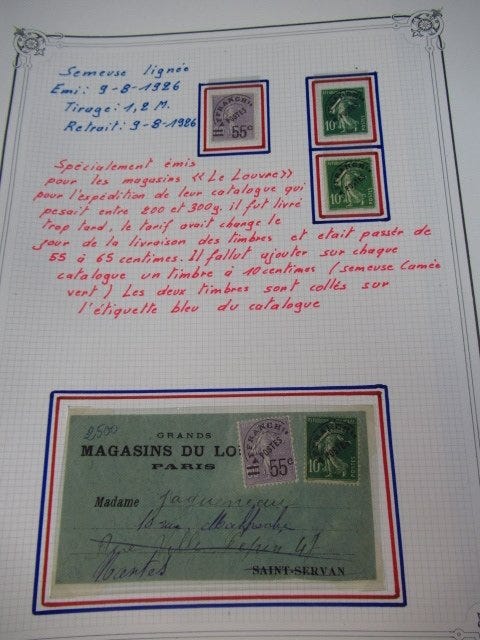 Semeuse lignée
Emi: 9-8-1926
Tirage: 1,2 M.
Retrait: 9-8-1926
AFFRANCHts
POSTES
55c
10c
10c
Spécialement émis
pour les magasins << Le Louvre >>
pour l'expédition de leur catalogue qui
pesait entre 200 et 300g. il fut livré
trop tard, le tarif avait changé le
jour de la livraison des timbres et etait passée de
55 à 65 centimes. Il fallut ajouter sur chaque
catalogue un timbre à 10 centimes (semeuse Camée
vert) Les deux timbres sont collés sur
l'étiquette bleu du catalogue
2,500
GRANDS
MAGASINS DU LO
PARIS
AFFRANCHts
POSTES
55c
10c
Madame
Nantes
SAINT-SERVAN